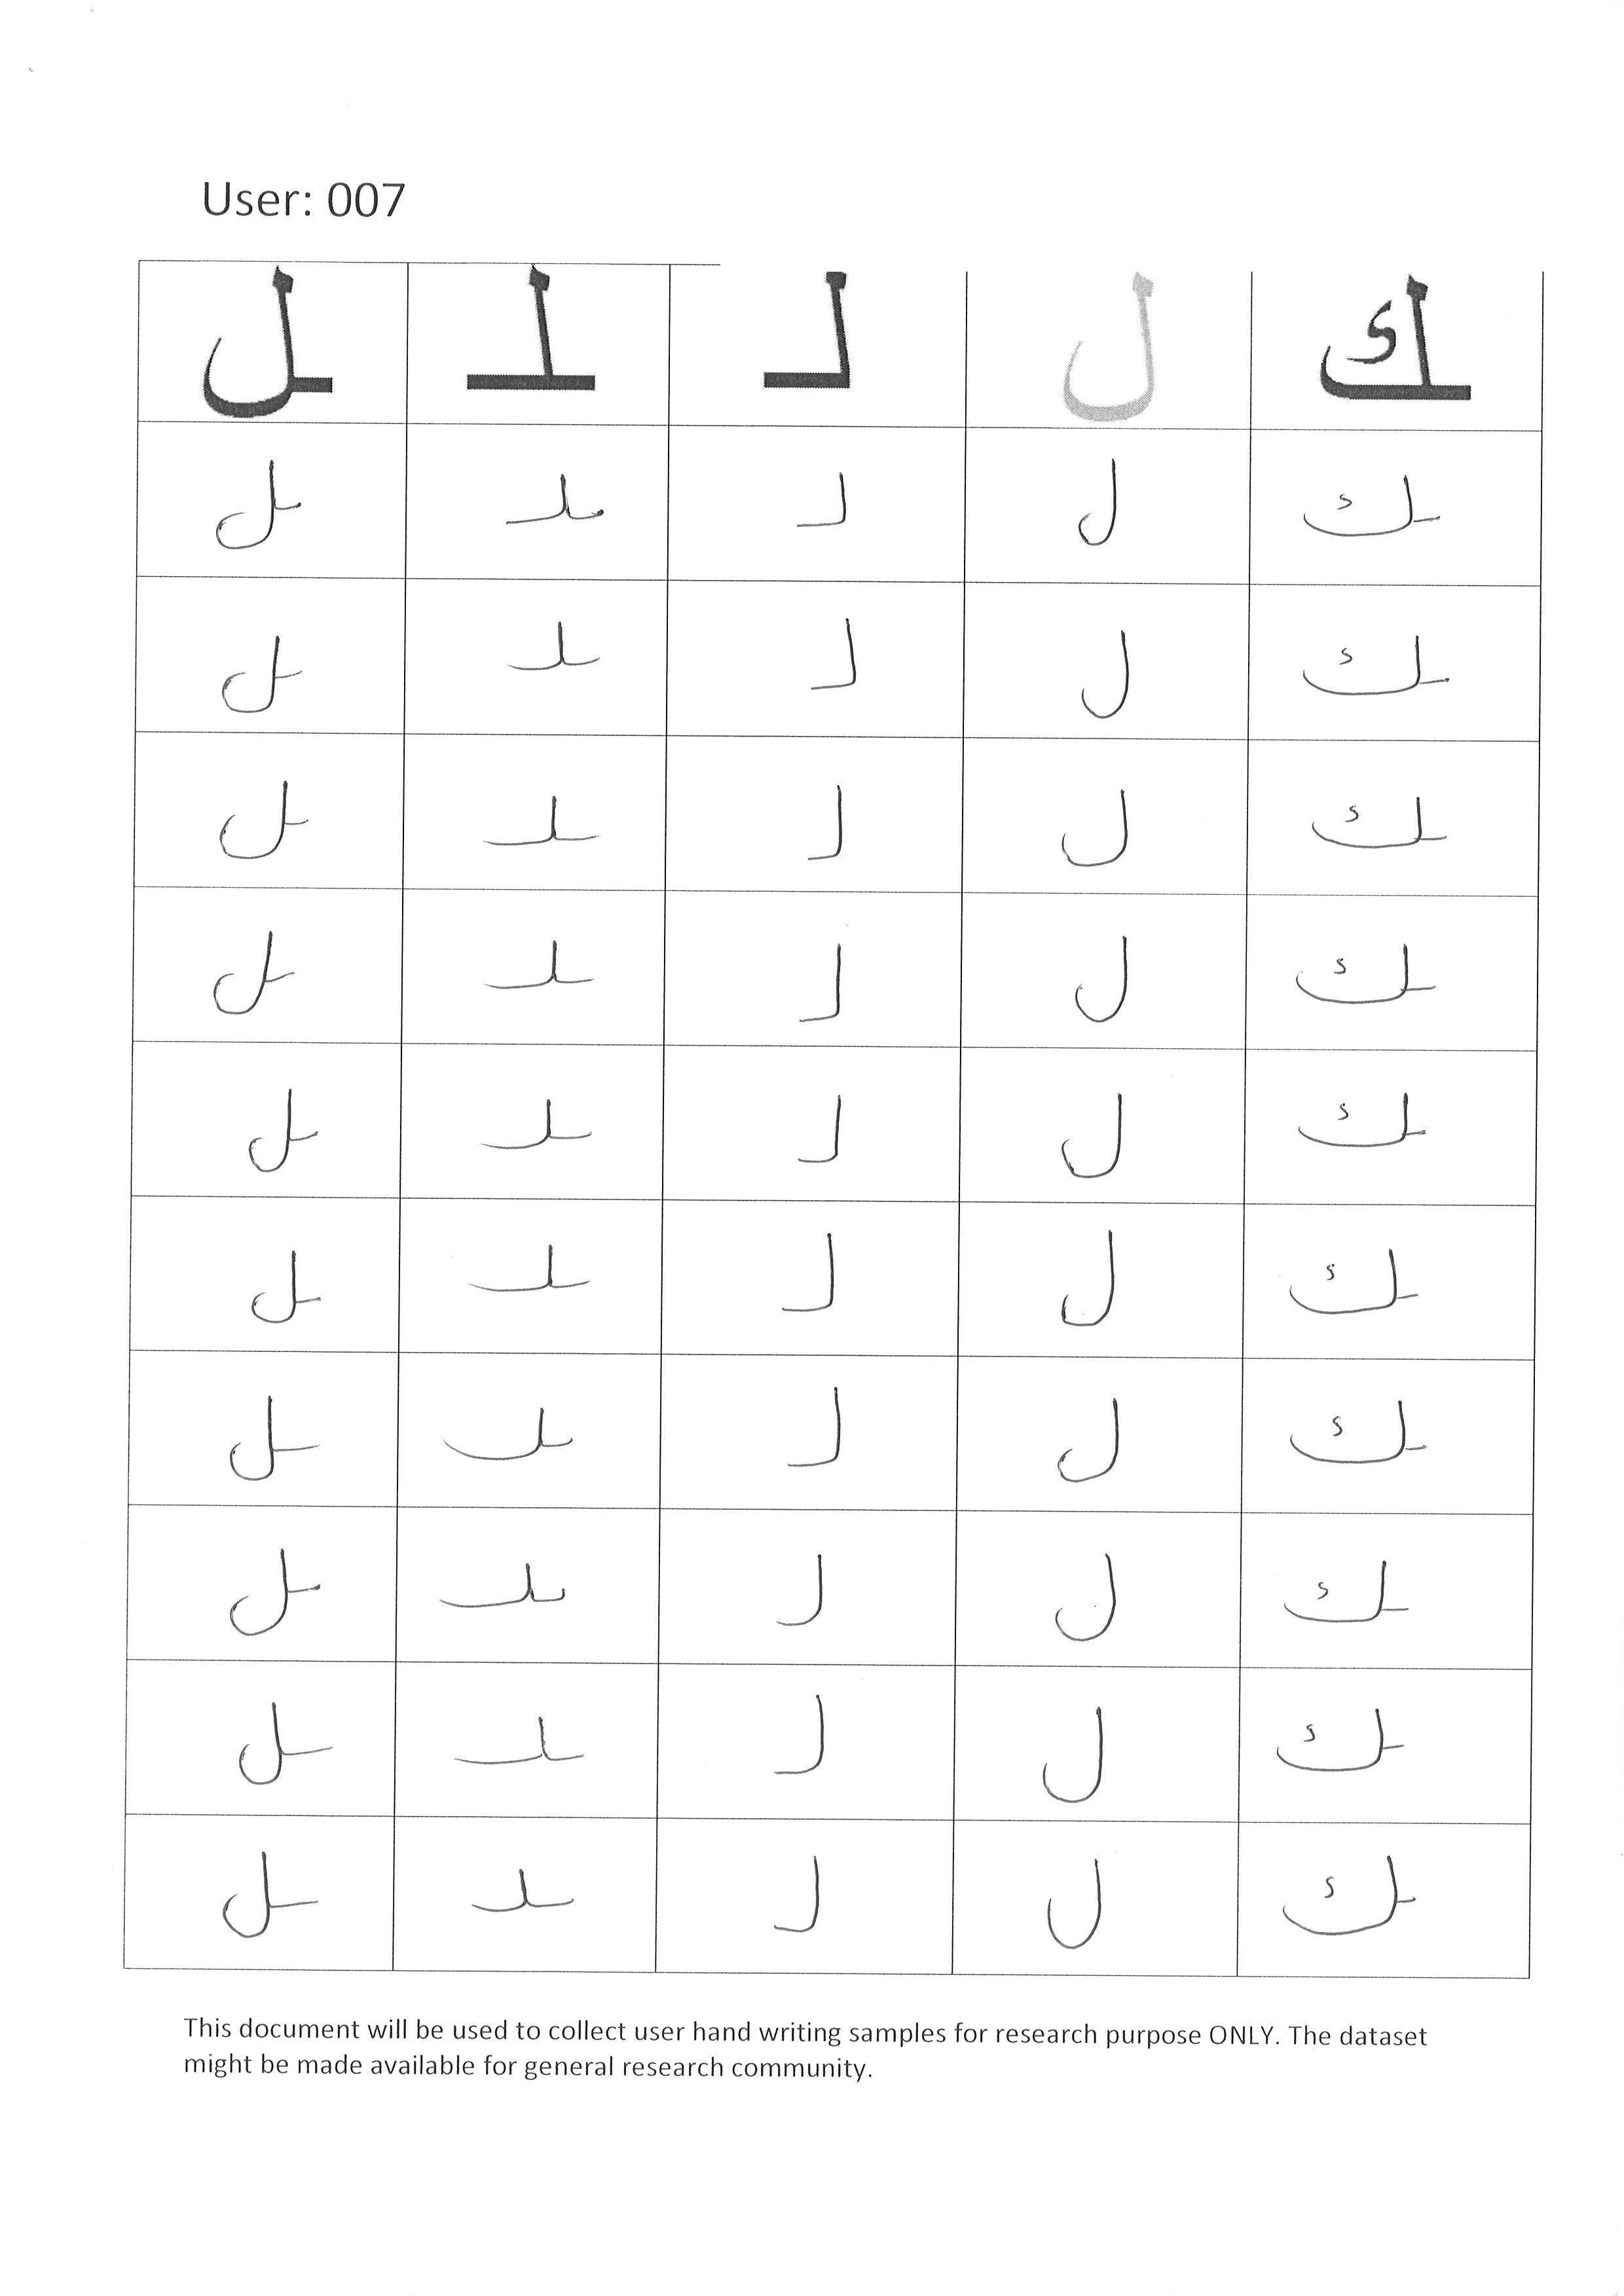 User: 007
ـل ـلـ لـ ل ـك
ـل ـلـ لـ ل ـك
ـل ـلـ لـ ل ـك
ـل ـلـ لـ ل ـك
ـل ـلـ لـ ل ـك
ـل ـلـ لـ ل ـك
ـل ـلـ لـ ل ـك
ـل ـلـ لـ ل ـك
ـل ـلـ لـ ل ـك
ـل ـلـ لـ ل ـك
ـل ـلـ لـ ل ـك
This document will be used to collect user hand writing samples for research purpose ONLY. The dataset
might be made available for general research community.